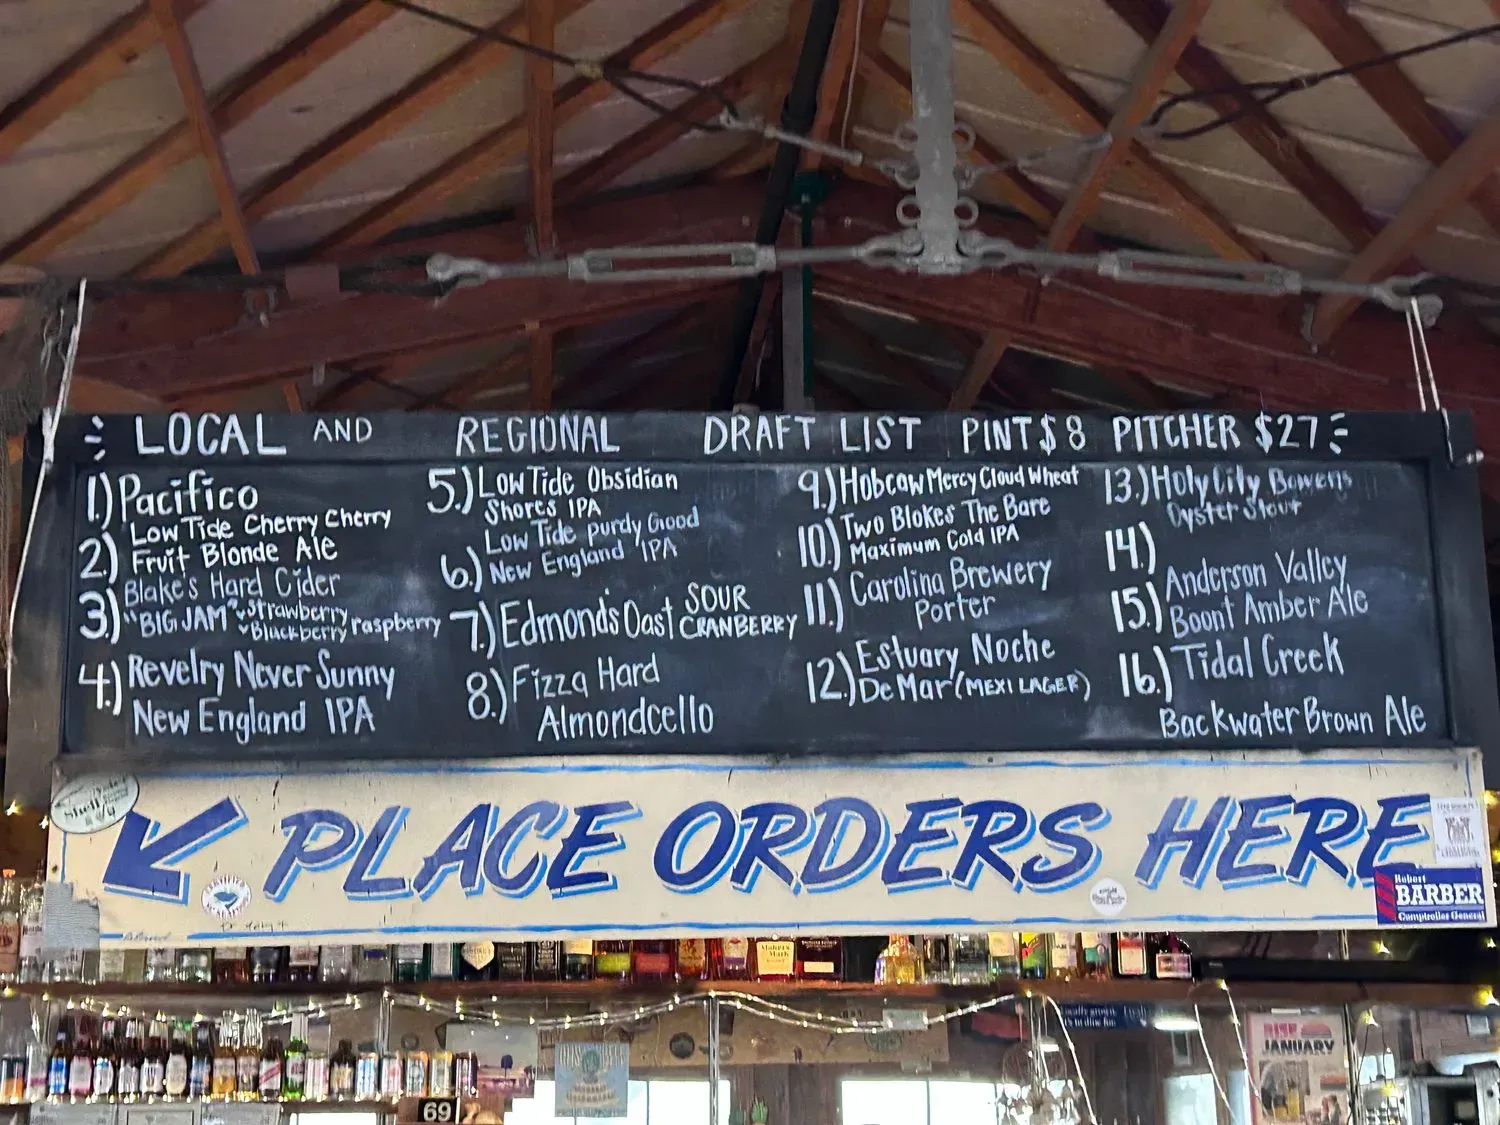 LOCAL AND REGIONAL DRAFT LIST PINT $8 PITCHER $27
1.) Pacifico
2.) Low Tide Cherry Cherry
Fruit Blonde Ale
3.) Blake's Hard Cider
"BIG JAM" Strawberry
Blackberry raspberry
4.) Revelry Never Sunny
New England IPA
5.) Low Tide Obsidian
Shores IPA
6.) Low Tide purdy Good
New England IPA
7.) Edmond's Oast SOUR
CRANBERRY
8.) Fizza Hard
Almondcello
9.) Hobcaw Mercy Cloud Wheat
10.) Two Blokes The Bare
Maximum Cold IPA
11.) Carolina Brewery
Porter
12.) Estuary Noche
De Mar (MEXI LAGER)
13.) Holy City Bowens
Oyster Stout
14.)
15.) Anderson Valley
Boont Amber Ale
16.) Tidal Creek
Backwater Brown Ale
PLACE ORDERS HERE
Robert
BARBER
Comptroller General
JANUARY
69